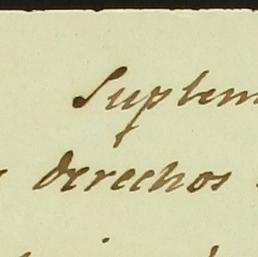 Suplem
derechos